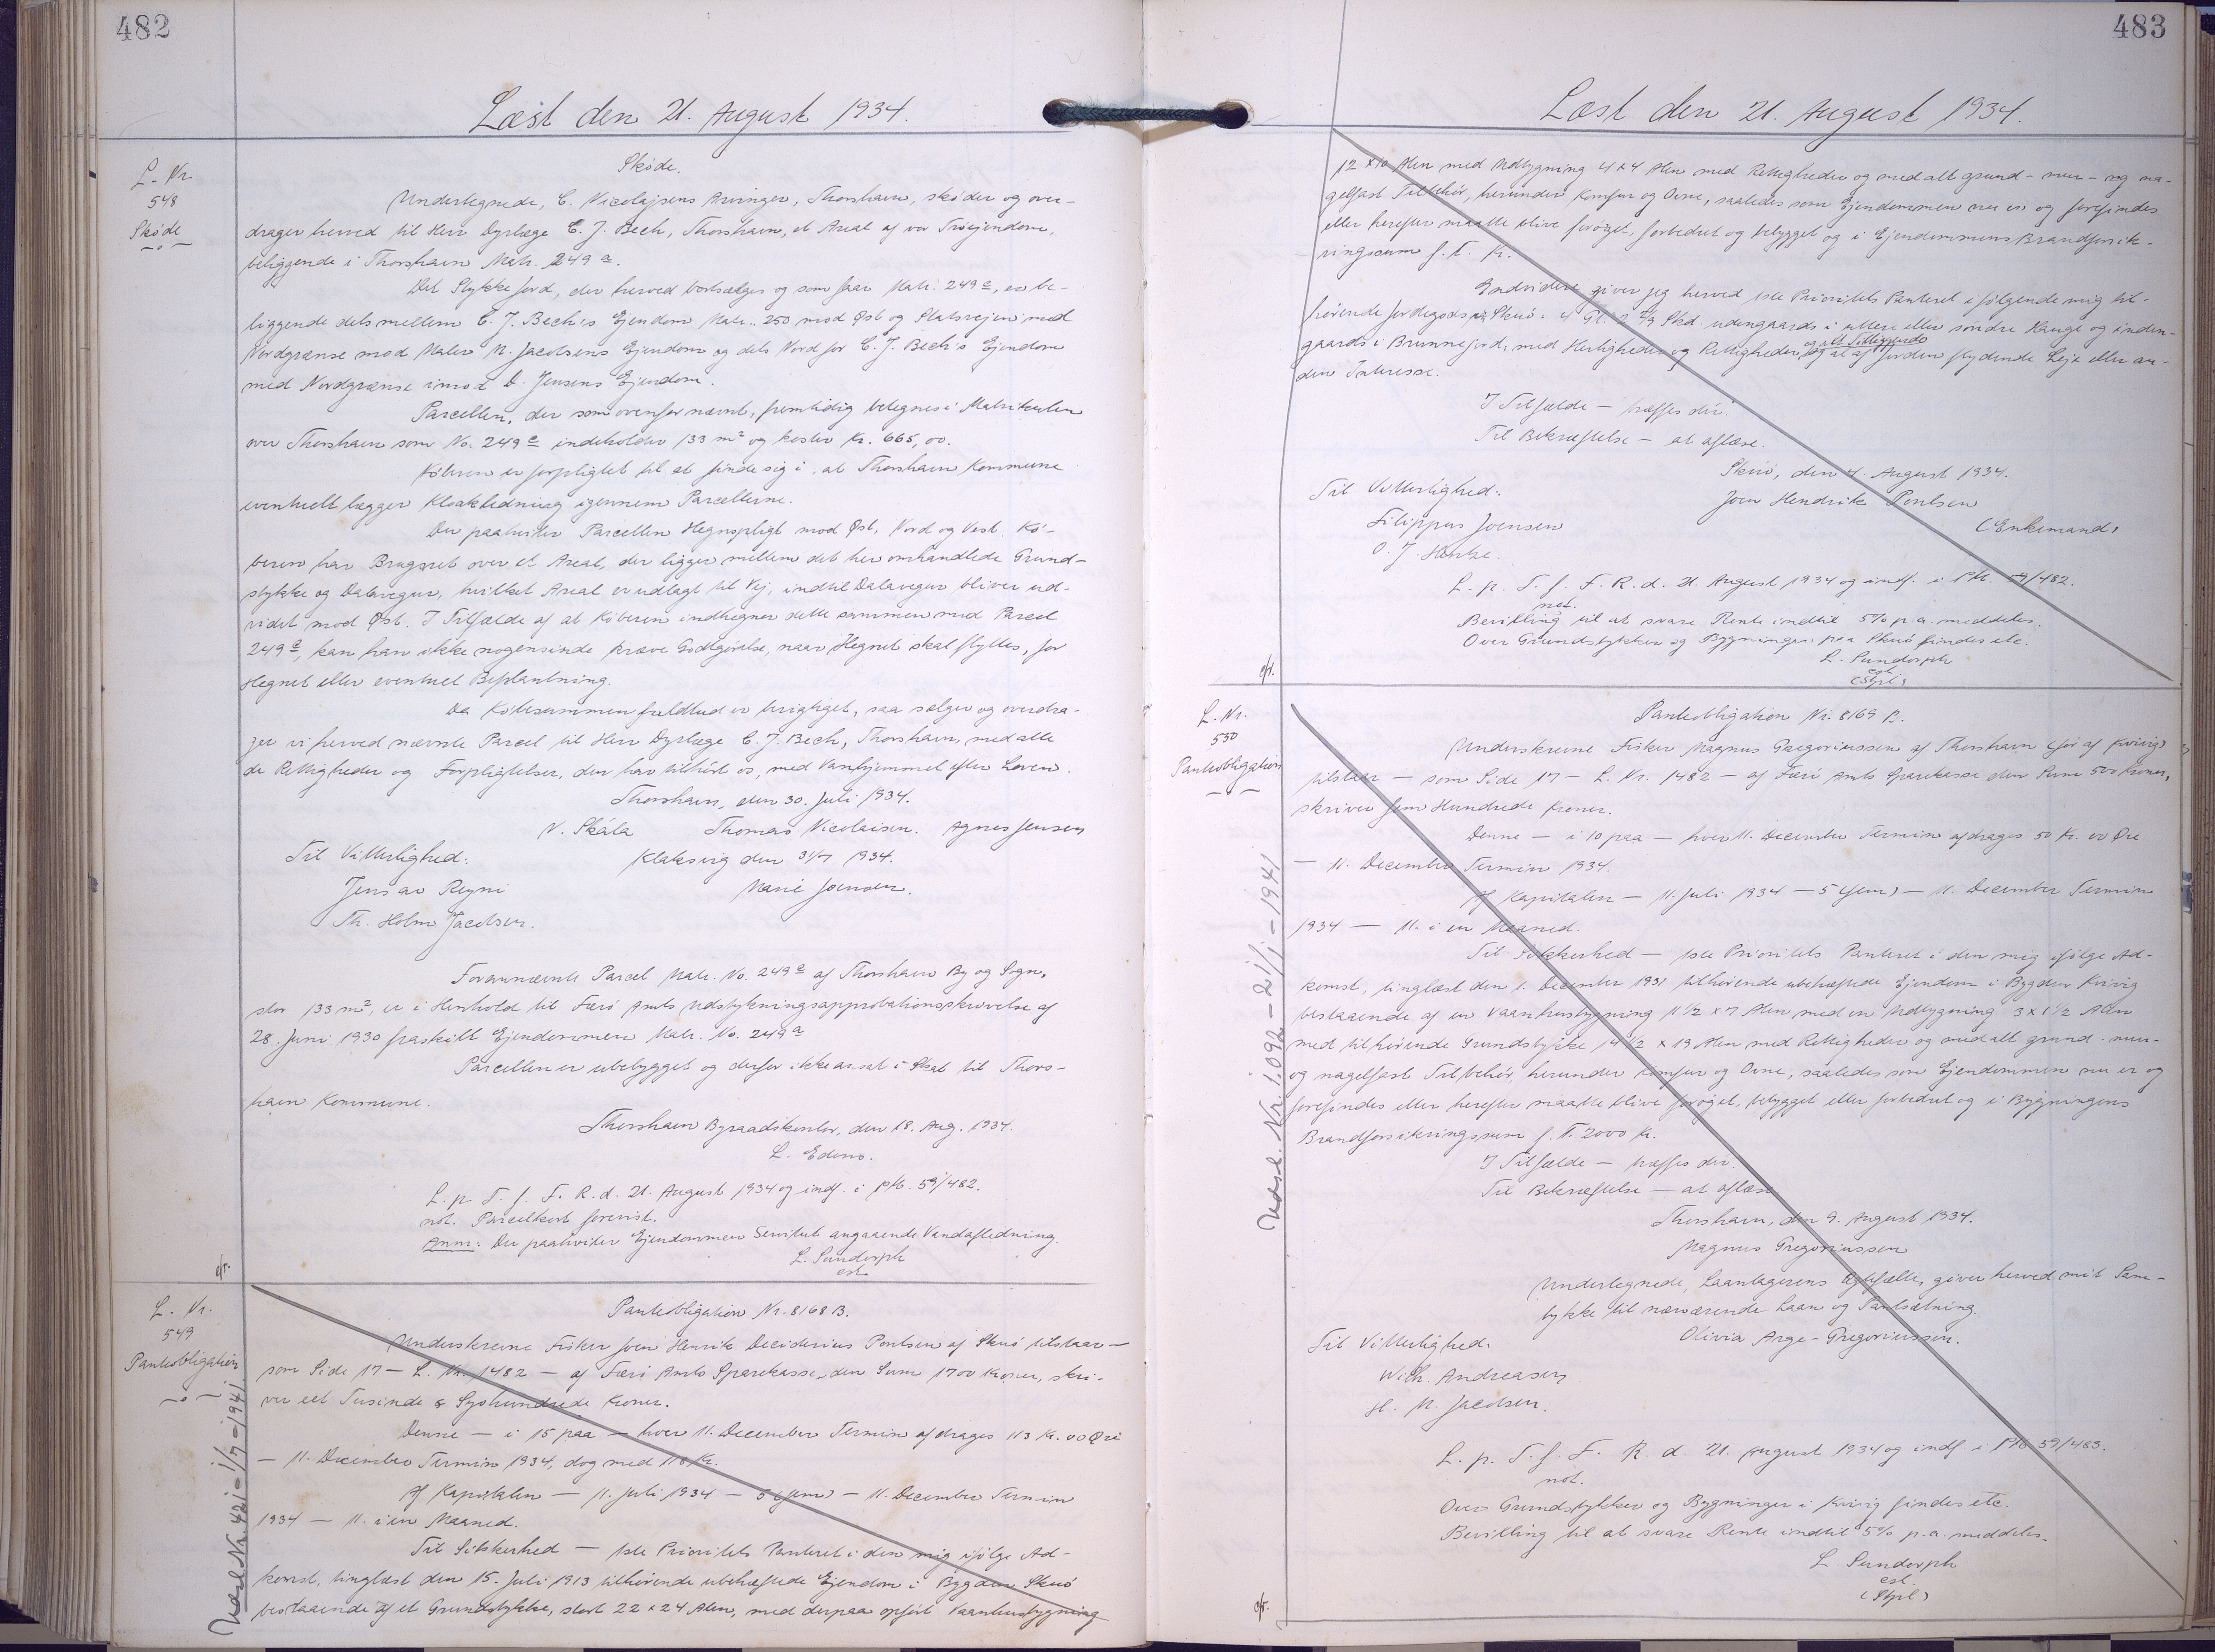 482
Læst den 21. August 1934.
L. Nr.
548
Skøde
Skøde.
Undertegnede, C. Nicolajsens Arvinger, Thorshavn, skøder og over-
drager herved til Herr Dyrlæge C. J. Bech, Thorshavn, et Areal af vor Trøejendom,
beliggende i Thorshavn Matr. 249 a.
Det Stykke Jord, der herved bortsælges og som faar Matr. 249 e, er be-
liggende dels mellem C. J. Bech's Ejendom Matr. 250 mod Øst og Statsvejen med
Nordgrænse mod Maler M. Jacobsens Ejendom og dels Nord for C. J. Bech's Ejendom
med Nordgrænse imod D. Jensens Ejendom.
Parcellen, der som ovenfor nævnt, fremtidig betegnes i Matrikulen
over Thorshavn som No. 249 e indeholder 133 m² og koster Kr. 665,00.
Køberen er forpligtet til at finde sig i, at Thorshavn Kommune
eventuelt lægger Kloakledning igennem Parcellerne.
Der paahviler Parcellen Hegnspligt mod Øst, Nord og Vest. Kø-
beren har Brugsret over et Areal, der ligger mellem det her omhandlede Grund-
stykke og Dalavegur, hvilket Areal er udlagt til Vej, indtil Dalavegur bliver ud-
videt mod Øst. I Tilfælde af at Køberen indhegner dette sammen med Parcel
249 e, kan han ikke nogensinde kræve Godtgørelse, naar Hegnet skal flyttes, for
Hegnet eller eventuel Beplantning.
Da Købesummen fuldtud er berigtiget, saa sælger og overdra-
ger vi herved nævnte Parcel til Herr Dyrlæge C. J. Bech, Thorshavn, med alle
de Rettigheder og Forpligtelser, der har tilhørt os, med Vanhjemmel efter Loven.
Thorshavn, den 30. Juli 1934.
N. Skála Thomas Nicolaisen. Agnes Jensen
Til Vitterlighed: Klaksvig den 31/7 1934.
Jens av Reyni Marie Joensen.
Th. Holm Jacobsen.
Forannævnte Parcel Matr. No. 249 e af Thorshavn By og Sogn,
stor 133 m², er i Henhold til Færø Amts Udstykningsapprobationsskrivelse af
28. Juni 1930 fraskilt Ejendommen Matr. No. 249 a
Parcellen er ubebygget og derfor ikke ansat i Skat til Thors-
havn Kommune.
Thorshavn Byraadskontor, den 18. Aug. 1934.
L. Edens.
L. p. T. f. F. R. d. 21. August 1934 og indf. i PM. 59/482.
not. Parcelkort forevist.
Anm: Der paahviler Ejendommen Servitut angaaende Vandafledning.
L. Sundorph
cst.
cfr.
L. Nr.
549
Panteobligation
Udsl. Nr. 421 - 1/7 - 1941
Panteobligation Nr. 8168 B.
Underskrevne Fisker Joen Henrik Deciderius Poulsen af Skuø tilstaar -
som Side 17 - L. Nr. 1482 - af Færø Amts Sparekasse, den Sum 1700 Kroner, skri-
ver eet Tusinde & Syvhundrede Kroner.
Denne - i 15 paa - hver 11. December Termin afdrages 113 Kr. 00 Øre
- 11. December Termin 1934, dog med 118 Kr.
Af Kapitalen - 11. Juli 1934 - 5 (fem) - 11. December Termin
1934 - 11. i en Maaned.
Til Sikkerhed - 1ste Prioritets Panteret i den mig ifølge Ad-
komst, tinglæst den 15. Juli 1913 tilhørende ubehæftede Ejendom i Bygden Skuø
bestaaende af et Grundstykke, stort 22 x 24 Alen, med derpaa opført Vaanhusbygning
483
Læst den 21. August 1934.
12 x 10 Alen med Udbygning 4 x 4 Alen med Rettigheder og med alt grund- mur- og na-
gelfast Tilbehør, herunder Komfur og Ovne, saaledes som Ejendommen nu er og forefindes
eller herefter maatte blive forøget, forbedret og bebygget og i Ejendommens Brandforsik-
ringssum f. T. Kr.
Endvidere giver jeg herved 1ste Prioritets Panteret i følgende mig til-
hørende Jordegods paa Skuø: 4 Gl. 2 2/3 Skd. udengaards i uttere eller søndre Hauge og inden-
gaards i Brunnejord, med Herligheder og Rettigheder og alt Tilliggende og al af Jorden flydende Leje eller an-
den Interesse.
I Tilfælde - træffes dér.
Til Bekræftelse - at aflæse.
Skuø, den 4. August 1934.
Til Vitterlighed: Joen Hendrik Poulsen
Filippus Joensen (Enkemand)
O. J. Hentze.
L. p. T. f. F. R. d. 21. August 1934 og indf. i PM. 59/482.
not.
Bevilling til at svare Rente indtil 5% p.a. meddeles.
Over Grundstykker og Bygninger paa Skuø findes etc.
L. Sundorph
cst.
(Stpl)
cfr.
L. Nr.
550
Panteobligation
Udsl. Nr. 1.092 - 21/1 - 1941
Panteobligation Nr. 8169 B.
Underskrevne Fisker Magnus Gregoriussen af Thorshavn (før af Kvivig)
tilstaar - som Side 17 - L. Nr. 1482 - af Færø Amts Sparekasse den Sum 500 Kroner,
skriver fem Hundrede Kroner.
Denne - i 10 paa - hver 11. December Termin afdrages 50 Kr. 00 Øre
- 11. December Termin 1934.
Af Kapitalen - 11. Juli 1934 - 5 (fem) - 11. December Termin
1934 - 11. i en Maaned.
Til Sikkerhed - 1ste Prioritets Panteret i den mig ifølge Ad-
komst, tinglæst den 1. December 1931 tilhørende ubehæftede Ejendom i Bygden Kvivig
bestaaende af en Vaanhusbygning 11 1/2 x 7 Alen med en Udbygning 3 x 1 1/2 Alen
med tilhørende Grundstykke 14 1/2 x 19 Alen med Rettigheder og med alt grund- mur-
og nagelfast Tilbehør, herunder Komfur og Ovne, saaledes som Ejendommen nu er og
forefindes eller herefter maatte blive forøget, bebygget eller forbedret og i Bygningens
Brandforsikringssum f. T. 2000 Kr.
I Tilfælde - træffes dér.
Til Bekræftelse - at aflæse
Thorshavn, den 9. August 1934.
Magnus Gregoriussen
Undertegnede, Laantagerens Ægtefælle, giver herved mit Sam-
tykke til nærværende Laan og Pantsætning.
Til Vitterlighed: Olivia Arge-Gregoriussen.
Wilh. Andreasen
H. M. Jacobsen.
L. p. T. f. F. R. d. 21. August 1934 og indf. i PM 59/483.
not.
Over Grundstykker og Bygninger i Kvivig findes etc.
Bevilling til at svare Rente indtil 5% p.a. meddeles.
L. Sundorph
cst.
(Stpl)
cfr.